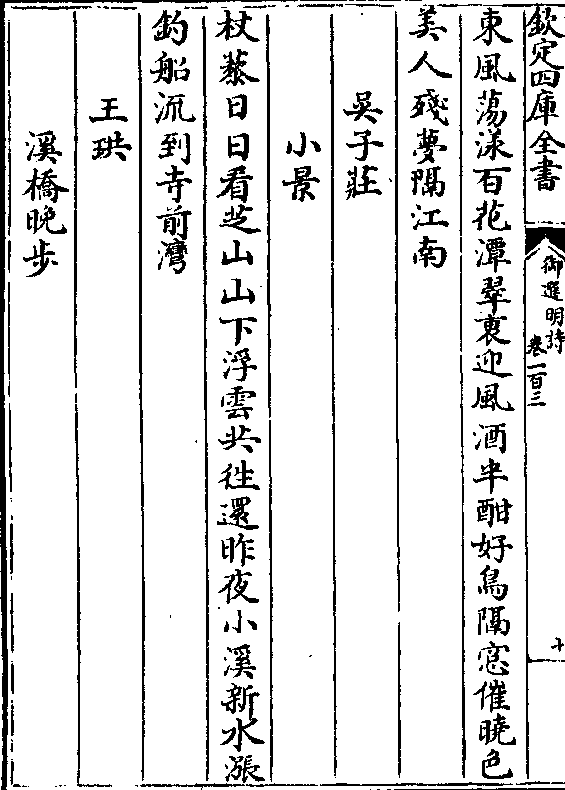 欽定四庫全書
御選明詩
卷一百三
十
東風蕩漾百花潭翠裏迎風酒半酣好鳥隔窓催曉色
美人殘夢隔江南
吳子莊
小景
杖藜日日看芝山山下浮雲共徃還昨夜小溪新水漲
釣船流到寺前灣
王珙
溪橋晚步